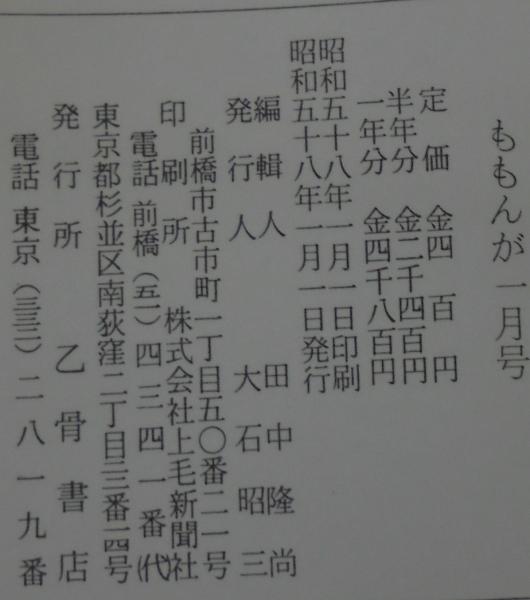 ももんが 一月号
定価 金四百円
半年分 金二千四百円
一年分 金四千八百円
昭和五十八年一月一日印刷
昭和五十八年一月一日発行
編輯人 田中隆尚
発行人 大石昭三
前橋市古市町一丁目五〇番二一号
印刷所 株式会社上毛新聞社
電話 前橋(五一)四三四一番(代)
東京都杉並区南荻窪二丁目三三番一四号
発行所 乙骨書店
電話 東京(三三二)二八一九番